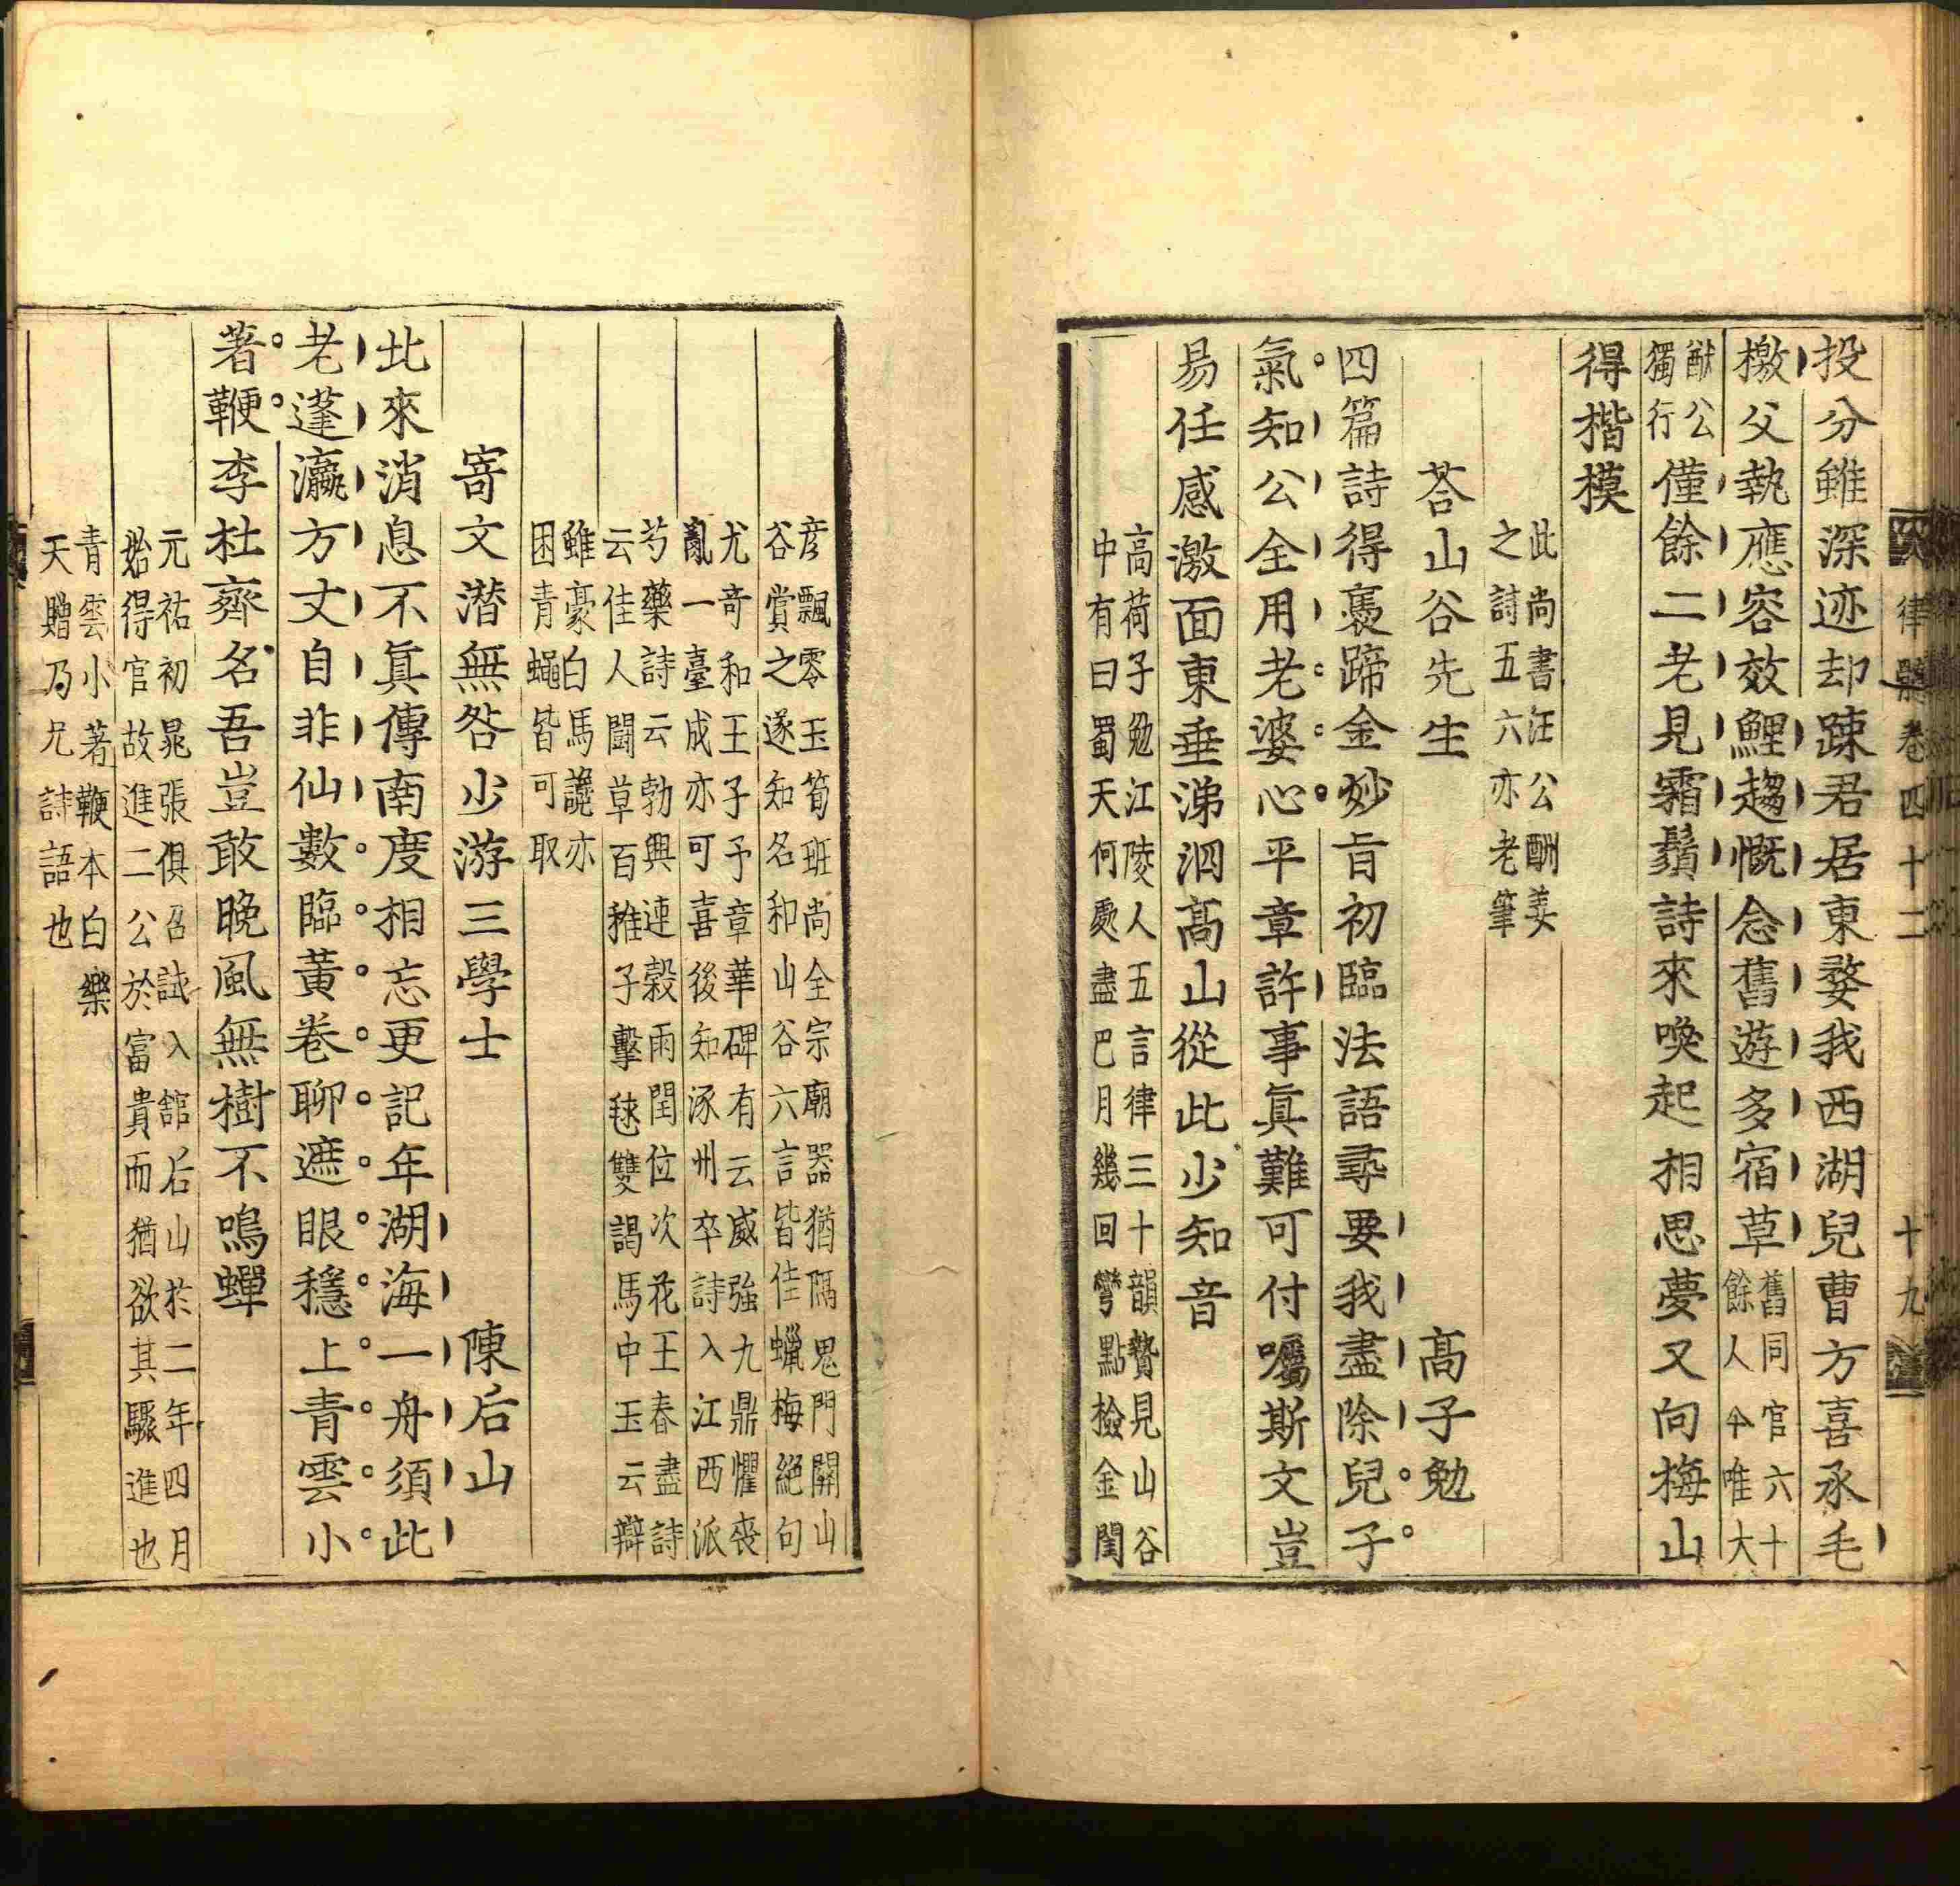 律髓卷四十二 十九
投分雖深迹却踈君居東婺我西湖兒曹方喜承毛
檄父執應容效鯉趨慨念舊遊多宿草舊同官六十餘人今唯大
猷公獨行公僅餘二老見霜鬚詩來喚起相思夢又向梅山
得楷模
此尚書汪公酬姜
之詩五六亦老筆
荅山谷先生 高子勉
四篇詩得褭蹄金妙旨初臨法語尋要我盡除兒子
氣知公全用老婆心平章許事真難可付囑斯文豈
易任感激面東垂涕泗高山從此少知音
高荷子勉江陵人五言律三十韻贄見山谷
中有曰蜀天何處盡巴月幾回彎點檢金閨
彦飄零玉筍班尚全宗廟器猶隔鬼門關山
谷賞之遂知名和山谷六言皆佳蠟梅絕句
尤奇和王子予章華碑有云威強九鼎懼喪
亂一臺成亦可喜後知涿州卒詩入江西派
芍藥詩云勃興連穀雨閏位次花王春盡詩
云佳人闘草百稚子擊毬雙謁馬中玉云辯
雖豪白馬讒亦
困青蠅皆可取
寄文潜無咎少游三學士 陳后山
北來消息不真傳南度相忘更記年湖海一舟須此
老蓬瀛方丈自非仙數臨黃卷聊遮眼穩上青雲小
著鞭李杜齊名吾豈敢晚風無樹不鳴蟬
元祐初晁張俱召試入舘后山於二年四月
始得官故進二公於富貴而猶欲其驟進也
青雲小著鞭本白樂
天贈乃尤詩語也